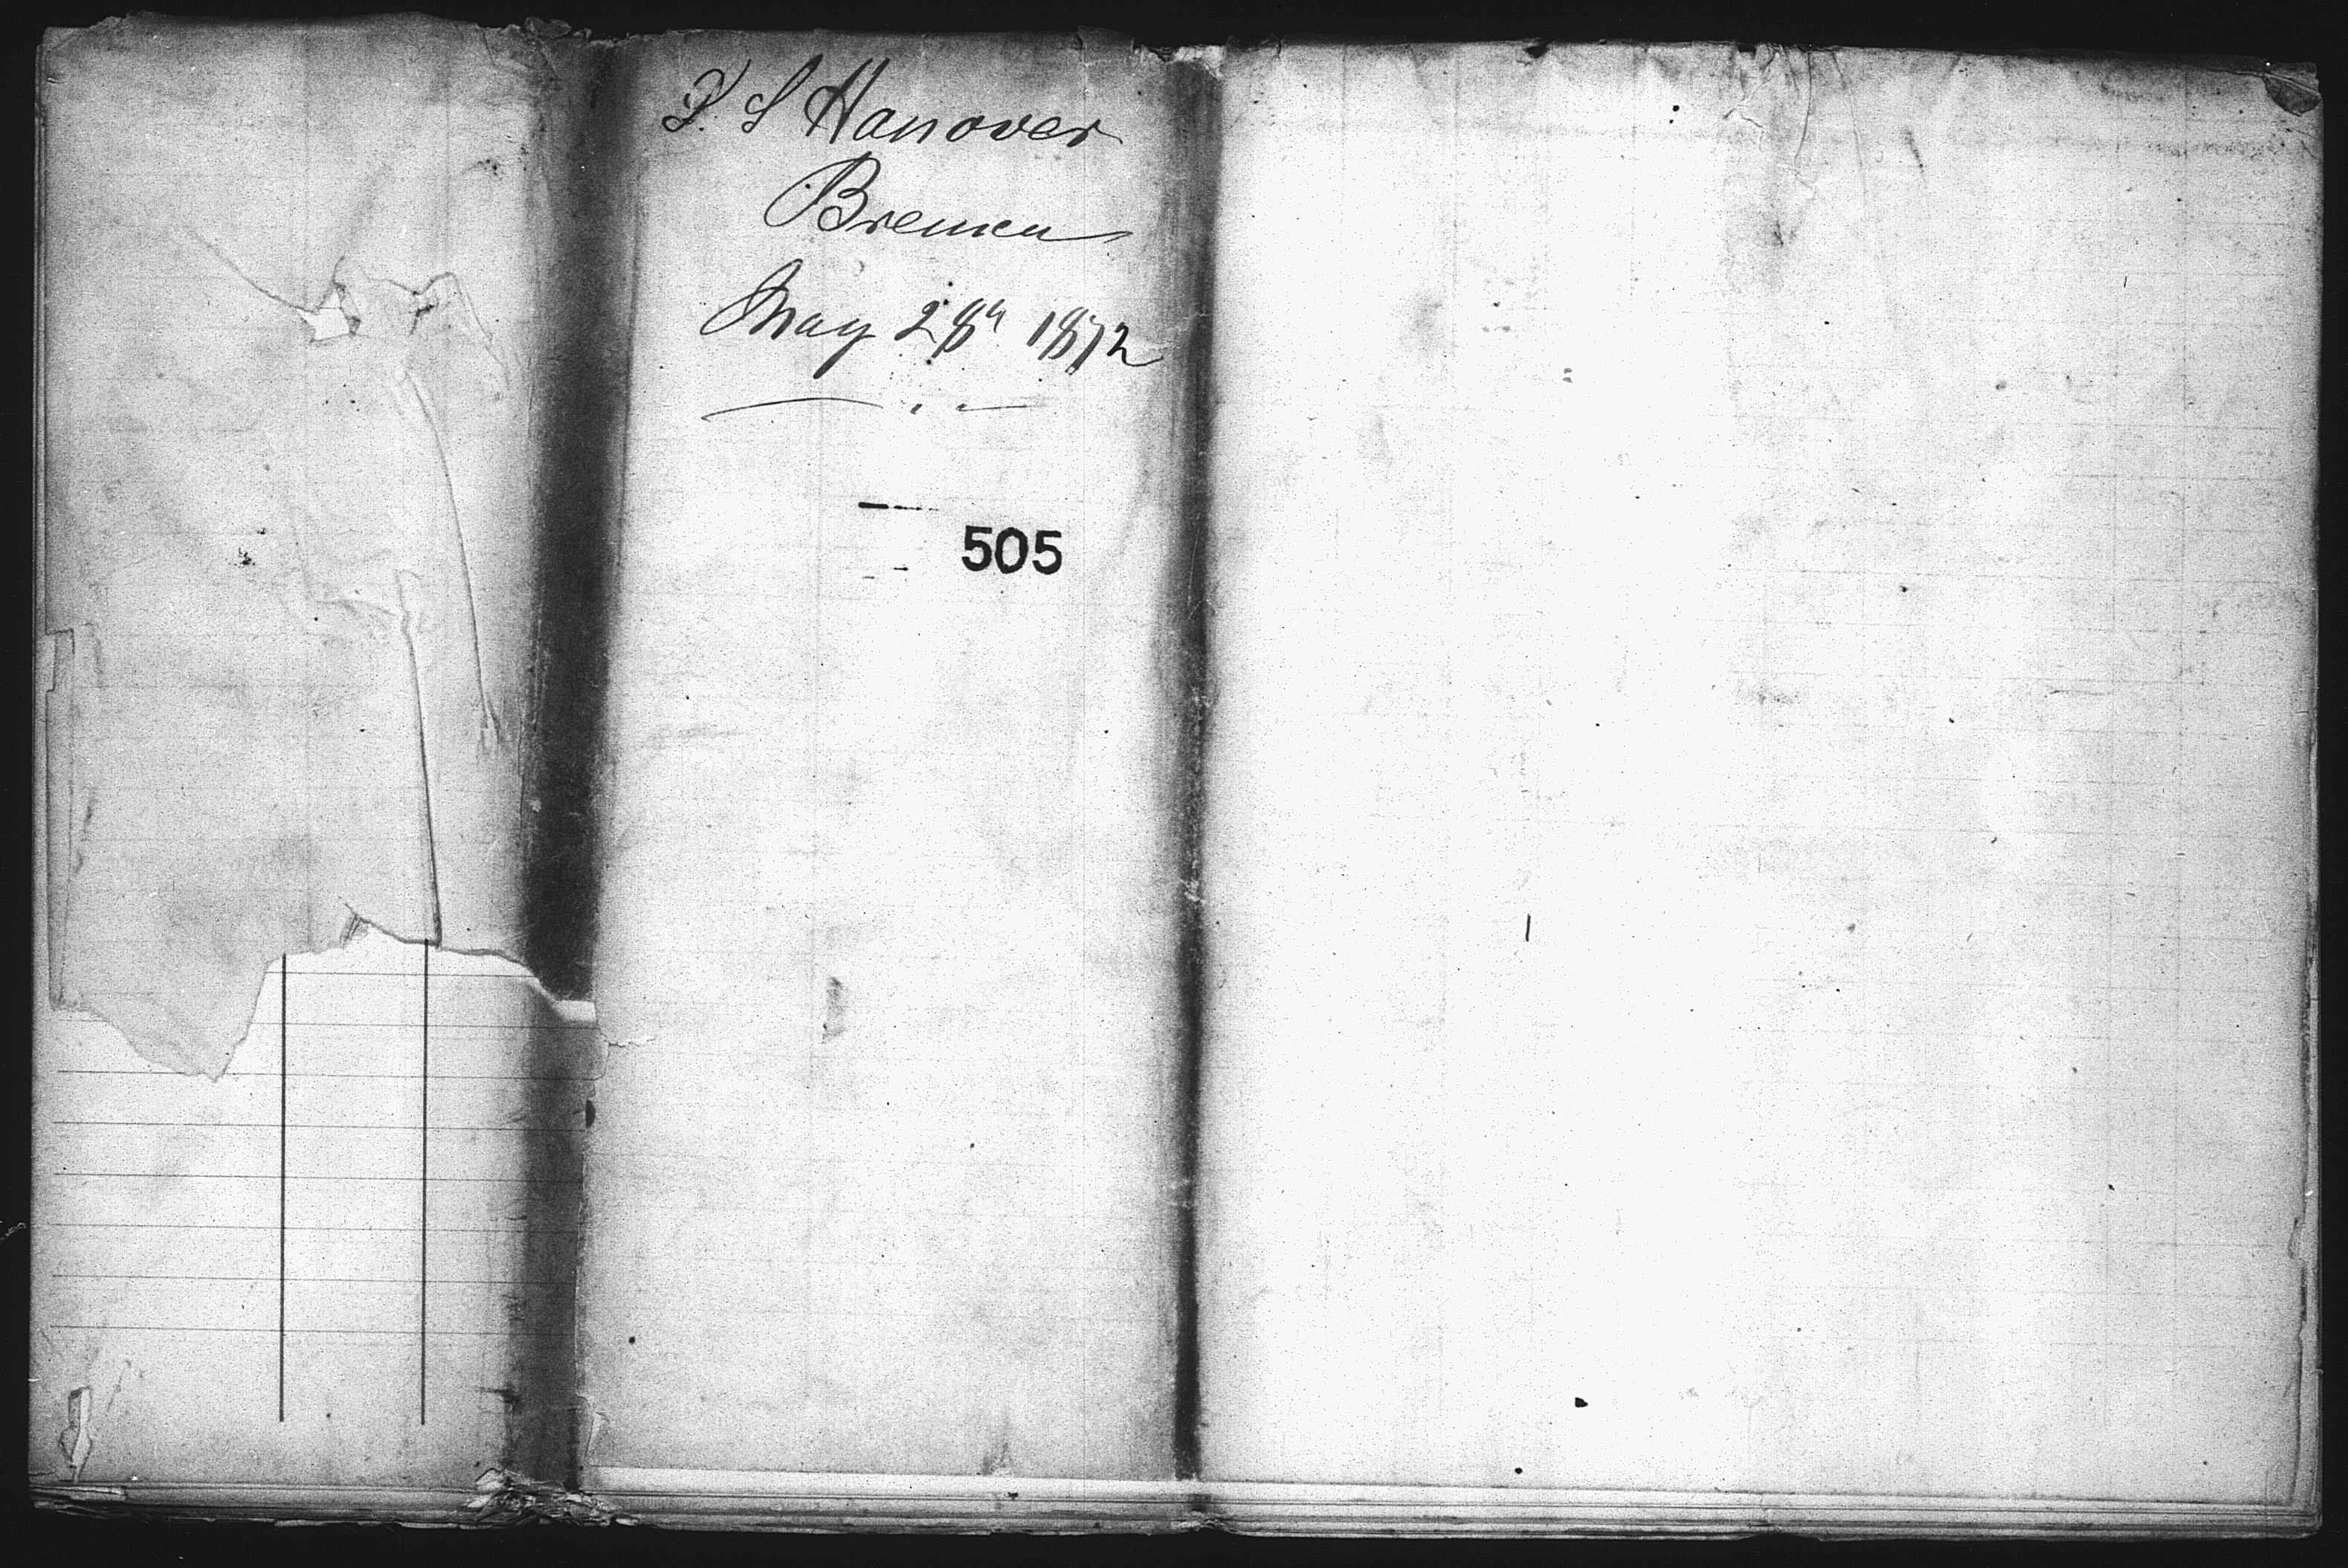 S S Hanover
Bremen
May 28th 1872
505